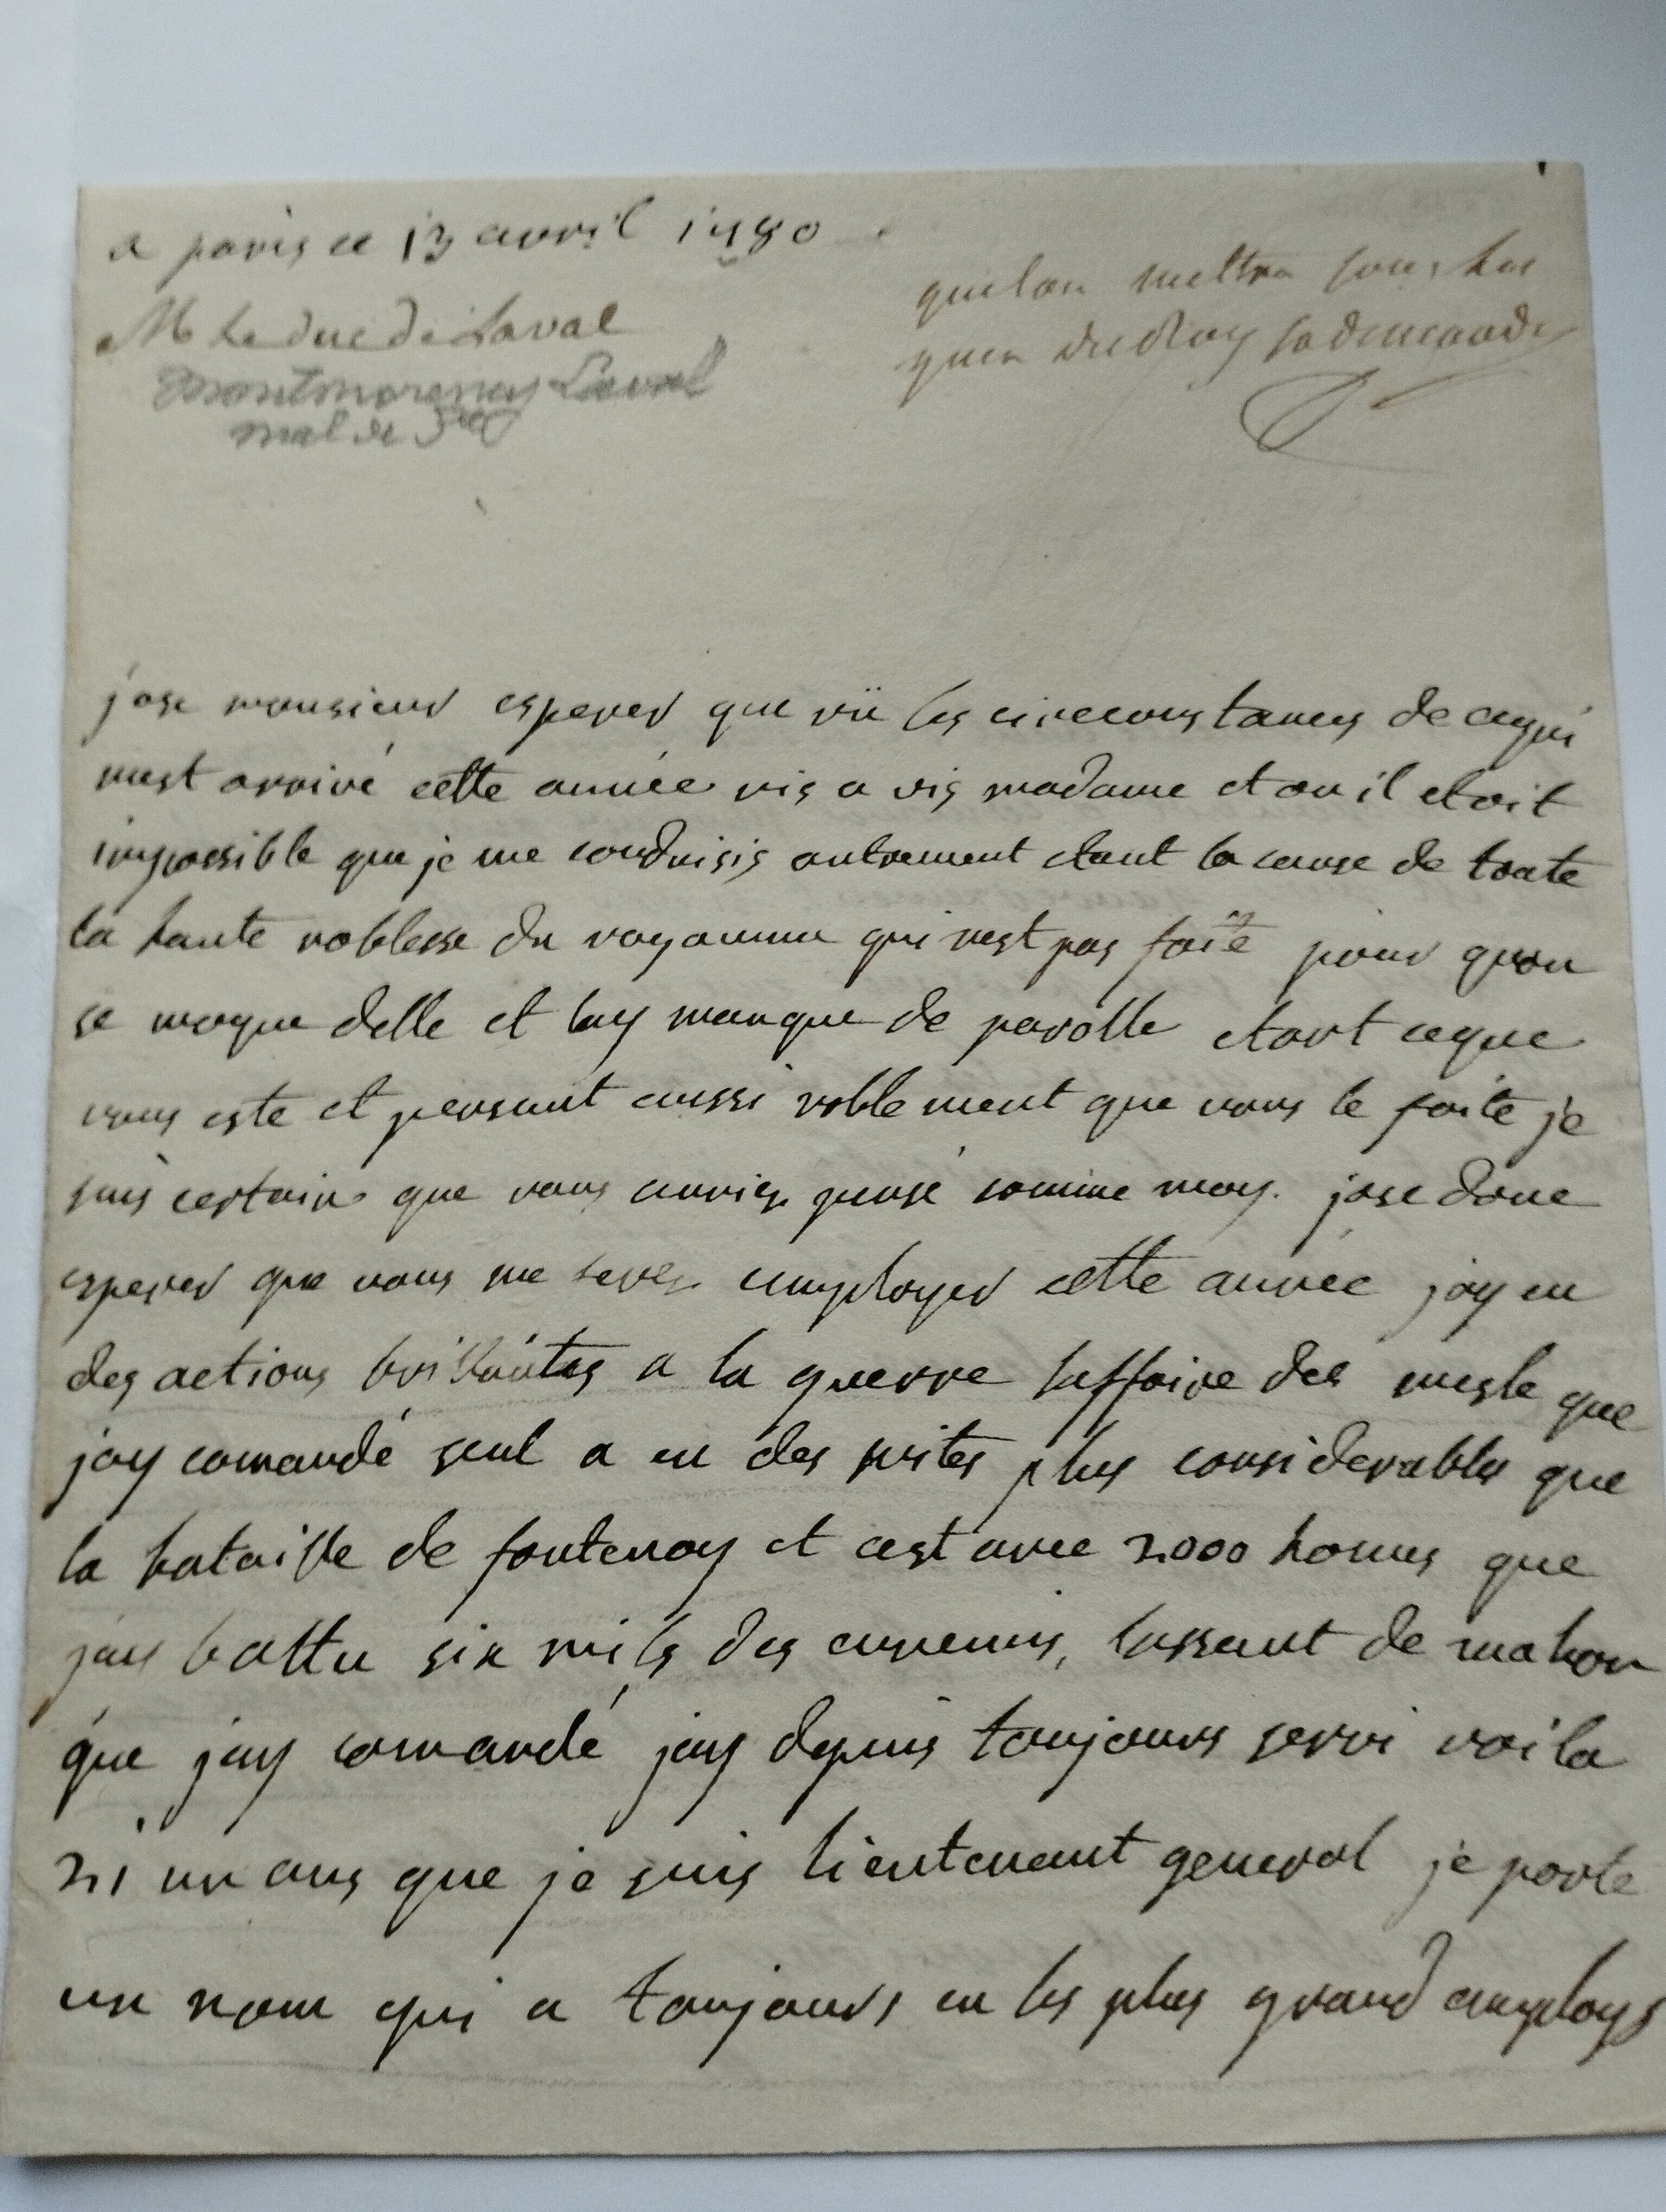 a paris ce 13 avril 1780
M le duc de Laval
Montmorency Laval
mal de
quil on mettra sous les
yeux du Roy sa demande
jose monsieur esperer que vü les circconstances de cequi
mest arrivé cette année vis a vis madame et ou il etoit
impossible que je me conduisis autrement etant la cause de toute
la haute noblesse du royaume qui nest pas faite pour quon
se moque delle et luy manque de parolle etant ceque
vous este et pensant aussi noblement que vous le faite je
suis certain que vous auriez pensé comme moy. jose donc
esperer que vous me serez employer cette année jay eu
des actions brillantes a la guerre laffaire des mesle que
jay comandé seul a eu des suites plus considerables que
la bataille de fontenoy et cest avec 2000 homes que
jay battu six mils des ennemis, lassaut de mahon
que jay comandé jay depuis toujours servi voila
21 un ans que je suis lieutenant general je porte
un nom qui a toujours eu les plus grand employs